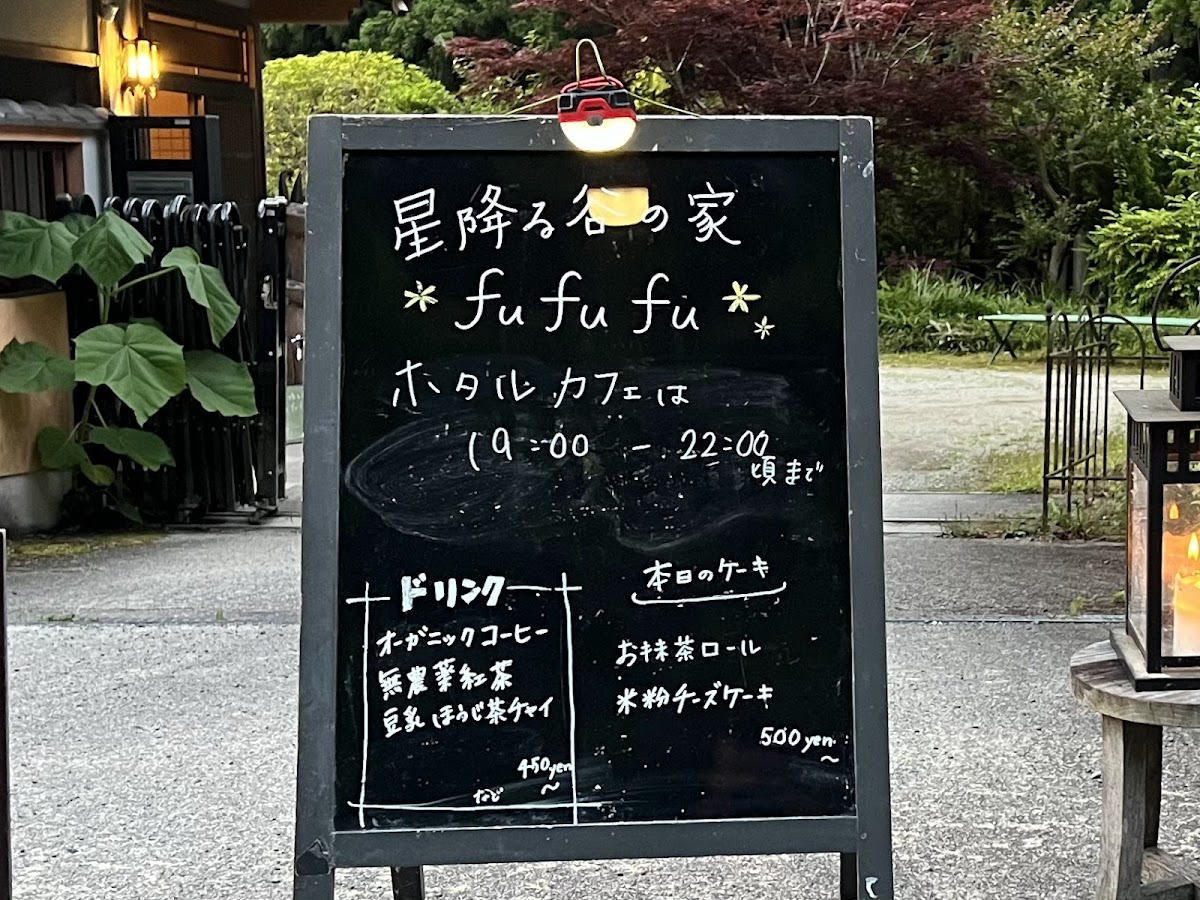 星降る谷の家
fu fu fu
ホタルカフェは
19:00 - 22:00
頃まで
ドリンク
オーガニックコーヒー
無農薬紅茶
豆乳ほうじ茶チャイ
450yen
〜
など
本日のケーキ
お抹茶ロール
米粉チーズケーキ
500yen.
〜